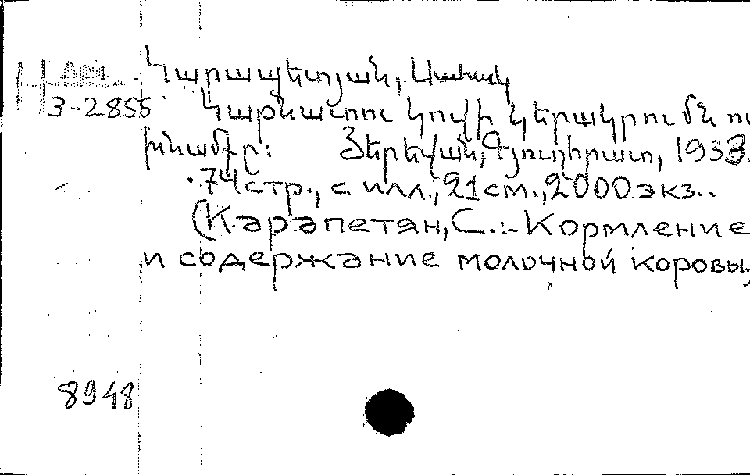 Կարապետյան, Սահակ
3-2855 Կաթնատու կովի կերակրումն ու
խնամքը: Յերեվան, Գյուղհրատ, 1933.
74 стр., с илл., 21 см., 2000 экз..
(Карапетян, С.:- Кормление
и содержание молочной коровы,
8948